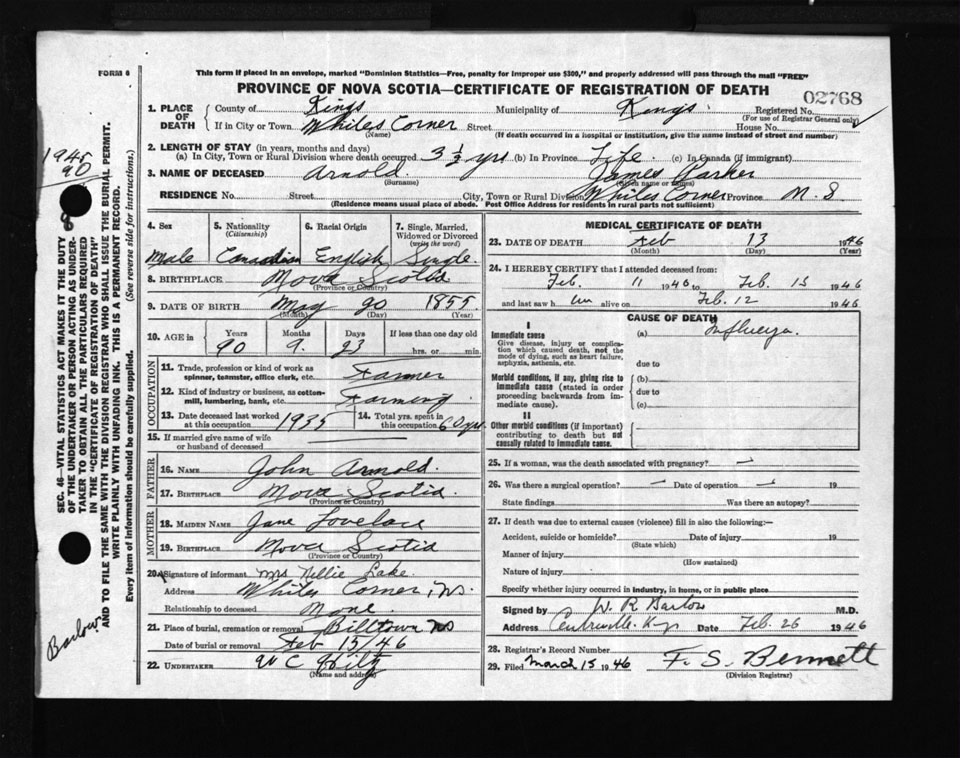 FORM 6
This form if placed in an envelope, marked "Dominion Statistics—Free, penalty for improper use $300," and properly addressed will pass through the mail "FREE"
PROVINCE OF NOVA SCOTIA—CERTIFICATE OF REGISTRATION OF DEATH
02768
1. PLACE OF DEATH
County of Kings Municipality of Kings. Registered No.
(For use of Registrar General only)
If in City or Town Whites Corner Street House No.
(Name) (If death occurred in a hospital or institution, give the name instead of street and number)
2. LENGTH OF STAY (in years, months and days)
(a) In City, Town or Rural Division where death occurred 3 ½ yrs (b) In Province Life. (c) In Canada (if immigrant)
3. NAME OF DECEASED Arnold. James Parker
(Surname) (Given name or names)
RESIDENCE No. Street City, Town or Rural Division Whites Corner Province N.S
(Residence means usual place of abode. Post Office Address for residents in rural parts not sufficient)
4. Sex 5. Nationality 6. Racial Origin 7. Single, Married, Widowed or Divorced
(Citizenship) (write the word)
Male Canadian English Single.
8. BIRTHPLACE Nova Scotia
(Province or Country)
9. DATE OF BIRTH May 20 1855
(Month) (Day) (Year)
10. AGE in Years Months Days If less than one day old
90 9. 23 hrs. or min.
OCCUPATION
11. Trade, profession or kind of work as spinner, teamster, office clerk, etc. Farmer
12. Kind of industry or business, as cotton-mill, lumbering, bank, etc. Farming
13. Date deceased last worked at this occupation 1935 14. Total yrs. spent in this occupation 60 yrs.
15. If married give name of wife or husband of deceased
FATHER
16. NAME John Arnold.
17. BIRTHPLACE Nova Scotia.
(Province or Country)
MOTHER
18. MAIDEN NAME Jane Lovelace
19. BIRTHPLACE Nova Scotia
(Province or Country)
20. Signature of informant Mrs Nellie Lake.
Address Whites Corner, N.S.
Relationship to deceased None.
21. Place of burial, cremation or removal Billtown NS
Date of burial or removal Feb 15/46
22. UNDERTAKER W C Hiltz
(Name and address)
MEDICAL CERTIFICATE OF DEATH
23. DATE OF DEATH Feb 13 1946
(Month) (Day) (Year)
24. I HEREBY CERTIFY that I attended deceased from:
Feb. 11 1946 to Feb. 13 1946
and last saw h im alive on Feb. 12 1946
CAUSE OF DEATH
I
Immediate cause
Give disease, injury or complication which caused death, not the mode of dying, such as heart failure, asphyxia, asthenia, etc.
(a) Influenza.
due to
Morbid conditions, if any, giving rise to immediate cause (stated in order proceeding backwards from immediate cause).
(b)
due to
(c)
II
Other morbid conditions (if important) contributing to death but not causally related to immediate cause.
25. If a woman, was the death associated with pregnancy? —
26. Was there a surgical operation? — Date of operation — 19
State findings Was there an autopsy?
27. If death was due to external causes (violence) fill in also the following:—
Accident, suicide or homicide? Date of injury 19
(State which)
Manner of injury
(How sustained)
Nature of injury
Specify whether injury occurred in industry, in home, or in public place
Signed by W R Barlow M.D.
Address Centreville. Kings Date Feb. 26 1946
28. Registrar's Record Number
29. Filed March 15 1946 F. S. Bennett
(Division Registrar)
1945
90
Barlow
SEC. 46—VITAL STATISTICS ACT MAKES IT THE DUTY
OF THE UNDERTAKER OR PERSON ACTING AS UNDER-
TAKER TO OBTAIN ALL THE PARTICULARS REQUIRED
IN THE "CERTIFICATE OF REGISTRATION OF DEATH"
AND TO FILE THE SAME WITH THE DIVISION REGISTRAR WHO SHALL ISSUE THE BURIAL PERMIT.
WRITE PLAINLY WITH UNFADING INK. THIS IS A PERMANENT RECORD.
Every item of information should be carefully supplied. (See reverse side for instructions.)